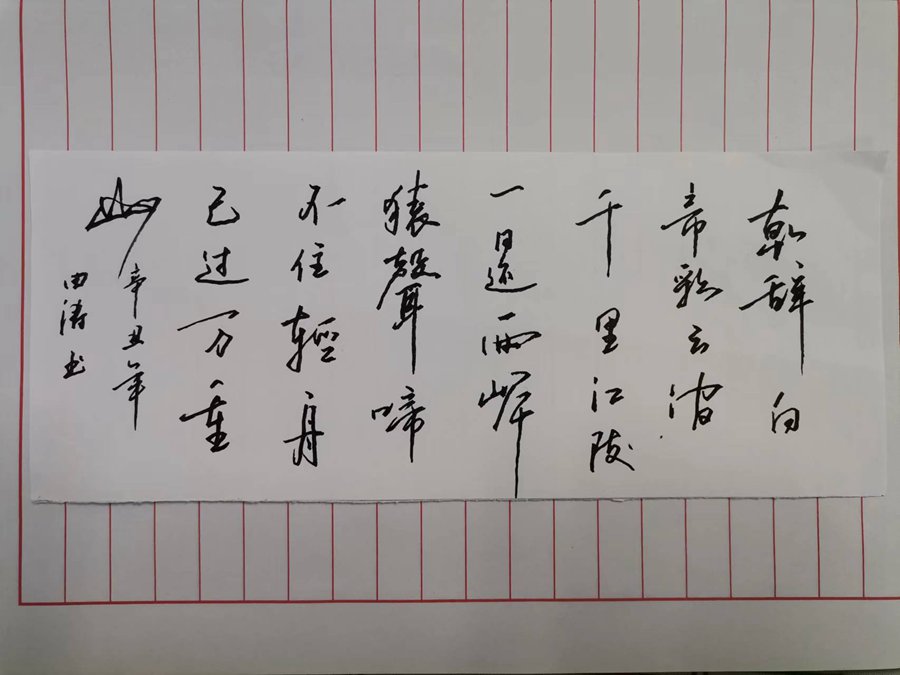 朝辞白
帝彩云间
千里江陵
一日还兩岸
猿聲啼
不住輕舟
已过万重
山
辛丑年
涛书